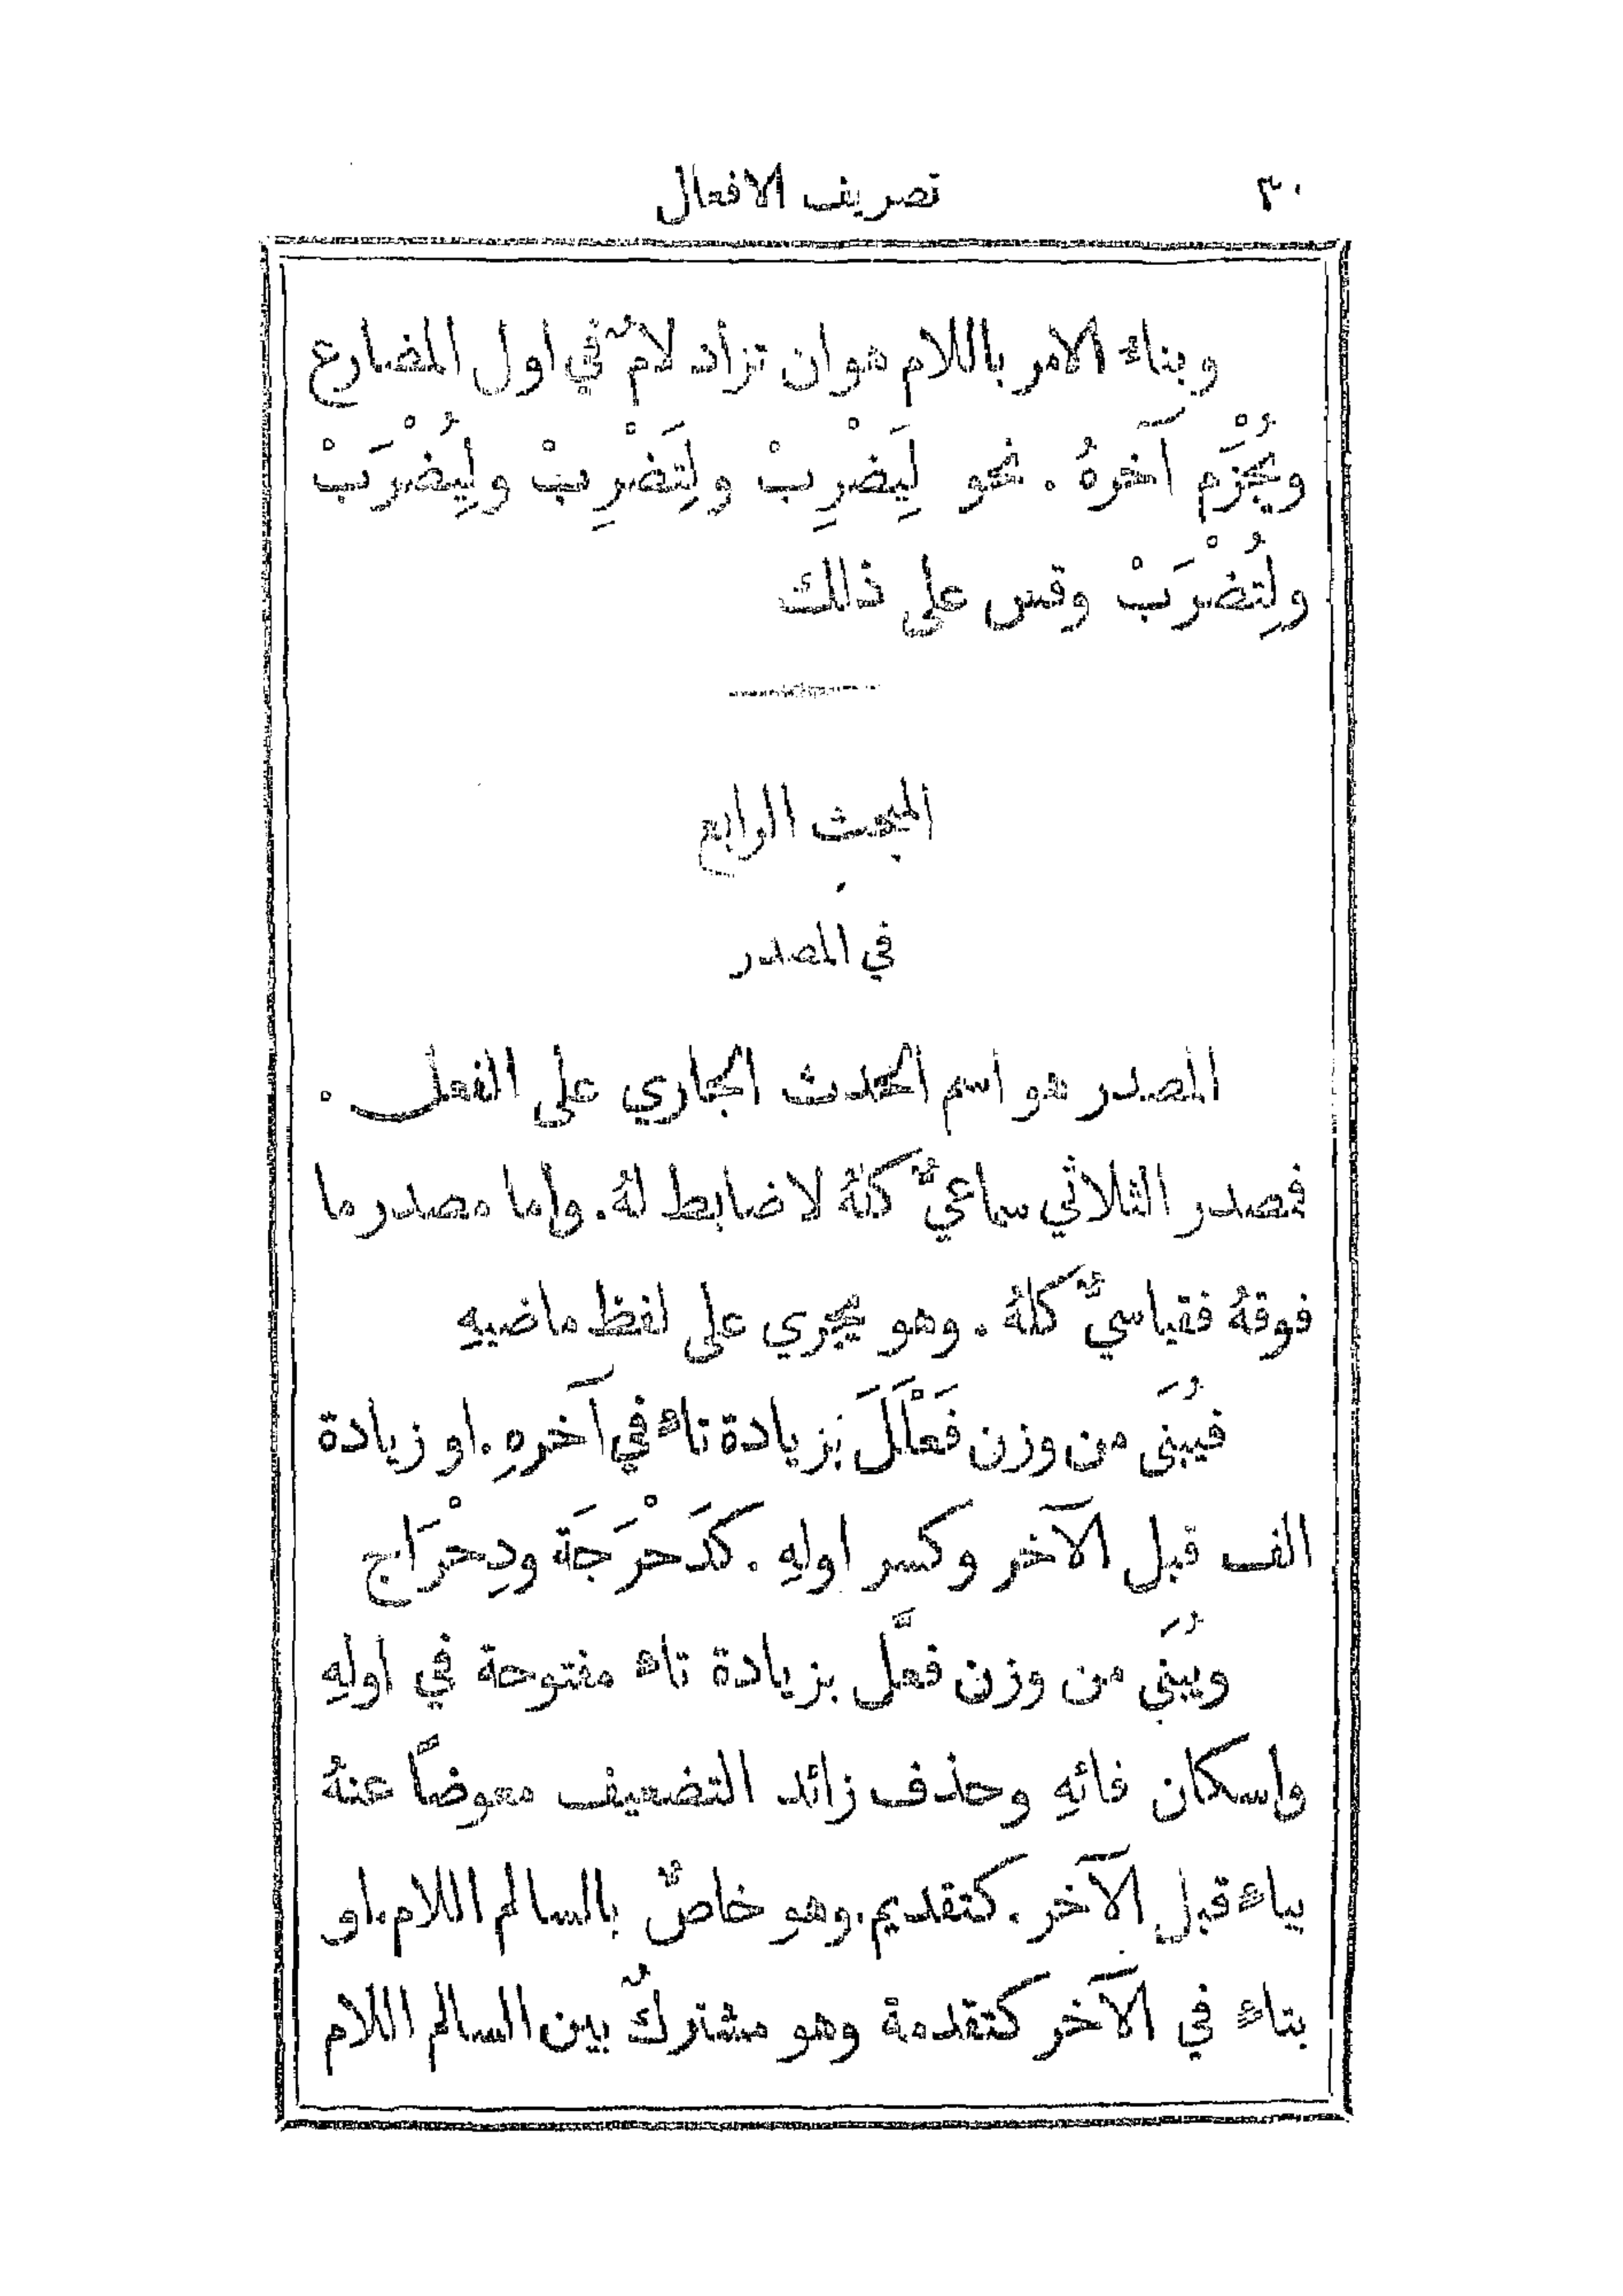 ٣٠ تصريف الافعال
وبناء الامر باللام هو ان تزاد لامٌ في اول المضارع
ويُجْزَم آخرهُ . نحو لِيَضْرِبْ ولِتَضْرِبْ ولِيُضْرَبْ
ولِتُضْرَبْ وقس على ذلك
المبحث الرابع
في المصدر
المصدر هو اسم الحدث الجاري على الفعل .
فمصدر الثلاثي سماعيٌّ كلهُ لا ضابط لهُ . واما مصدر ما
فوقهُ فقياسيٌّ كلهُ . وهو يجري على لفظ ماضيهِ
فيُبنَى من وزن فَعْلَلَ بزيادة تاء في آخرهِ . او زيادة
الف قبل الآخر وكسر اولهِ . كدَحْرَجَة ودِحْرَاج
ويُبنَى من وزن فعَّل بزيادة تاء مفتوحة في اولهِ
واسكان فائهِ وحذف زائد التضعيف معوضاً عنهُ
بياء قبل الآخر . كتقديم . وهو خاصٌّ بالسالم اللام . او
بتاء في الآخر كتقدمة وهو مشتركٌ بين السالم اللام